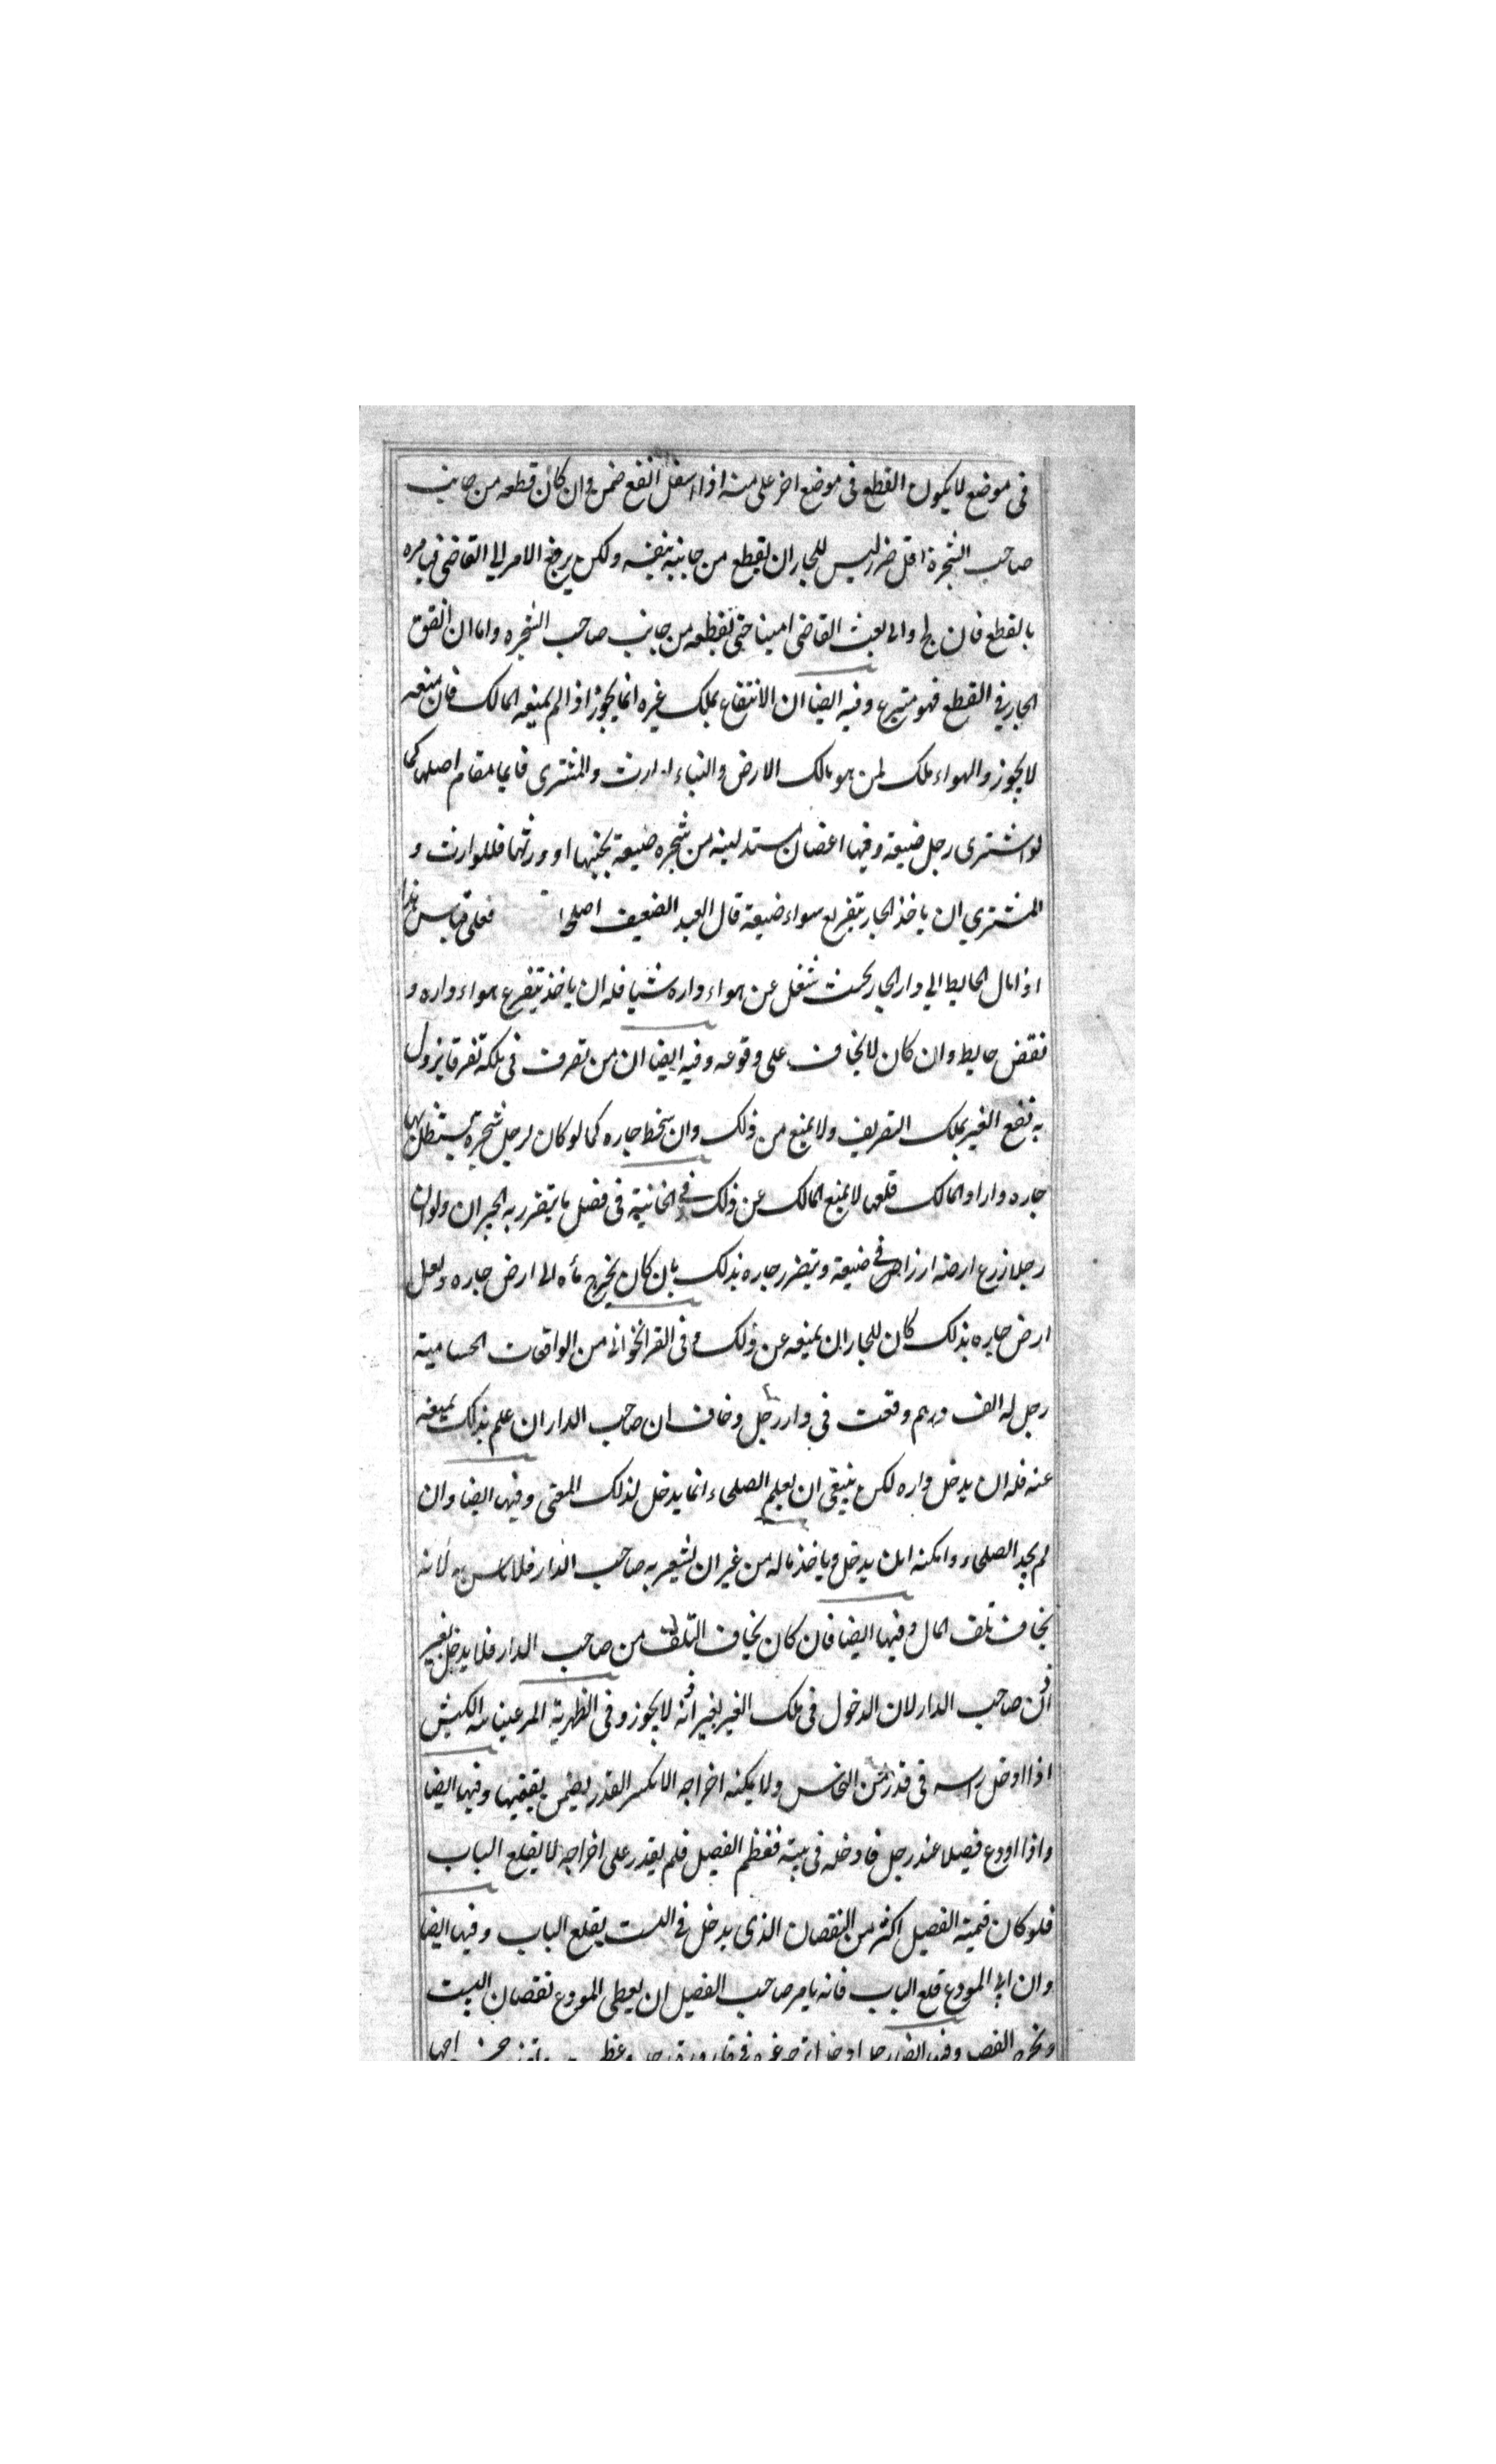 في موضع لا يكون القطع في موضع اخر على منه او اسفل انفع ضمن وان كان قطعه من جانب
صاحب الشجرة اقل ضرر ليس للجار ان يقطع من جانبه بنفسه ولكن يرفع الامر الى القاضي فيامره
بالقطع فان والى بعث القاضي امينا حتى يقطعه من جانب صاحب الشجره واما ان انفق
الجار في القطع فهو متبرع وفيه ايضا ان الانتفاع بملك غيره انما يجوز اذا لم يمنعه المالك فان منعه
لا يجوز والهواء ملك لمن هو مالك الارض والبناء والمشترى قايما مقام اصلها كما
لو اشترى رجل ضيعة وفيها اغصان متدلية من شجره ضيعة بجنبها او ورثها فللوارث و
المشتري ان ياخذ الجار بتفريع سواء ضيعة قال العبد الضعيف اصلح فعلى قياس هذا
اذا مال الحايط الى دار الجار بحيث شغل عن هواء داره شيا فله ان ياخذ بتفريع هواء داره و
نقض حايط وان كان لا يخاف على وقوعه وفيه ايضا ان من تصرف في ملكه تصرفا يزول
به نفع الغير بملك التصريف ولا يمنع من ذلك وان سخط جاره كما لو كان لرجل شجرة يستظل بها
جاره واراد المالك قلعها لا يمنع المالك عن ذلك وفي الخانية في فصل ما يتضرر به الجيران ولو ان
رجلا زرع ارضه ارزا في ضيعة ويتضرر جاره بذلك بان كان يخرج ماءه الى ارض جاره ويعل
ارض جاره بذلك كان للجار ان يمنعه عن ذلك وفي القراخواني من الواقعات الحسامية
رجل له الف درهم وقعت في دار رجل وخاف ان صاحب الدار ان علم بذلك يمنعه
عنه فله ان يدخل داره لكن ينبغي ان يعلم الصلحاء انما يدخل لذلك المعنى وفيها ايضا وان
لم يجد الصلحاء وامكنه ان يدخل وياخذ ماله من غير ان يشعر به صاحب الدار فلا باس به لانه
يخاف تلف المال وفيها ايضا فان كان يخاف التلف من صاحب الدار فلا يدخل بغير
اذن صاحب الدار لان الدخول في ملك الغير بغير اذنه لا يجوز وفي الظهرية المرعيناني الكبش
اذا ادخل راسه في قدر من النحاس ولا يمكنه اخراجه الا بكسر القدر يضمن بقيمتها وفيها ايضا
واذا اودع فصيلا عند رجل فادخله في بيته فعظم الفصيل فلم يقدر على اخراجه لا يقلع الباب
فلو كان قيمته الفصيل اكثر من النقصان الذي يدخل في البيت يقلع الباب وفيها ايضا
وان ابى المودع قلع الباب فانه يامر صاحب الفصيل ان يعطى المودع نقصان البيت